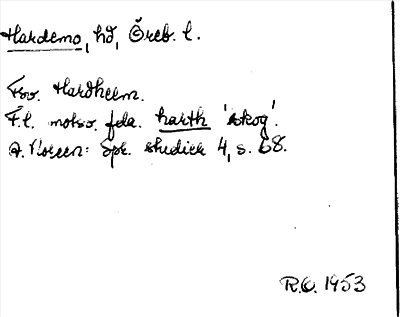 Hardemo, hd, Öreb. l.
Fsv. Hardheem.
F.l. motsv. fda. harth 'skog'.
A. Noreen: Spr. studier 4, s. 68.
R.O. 1953